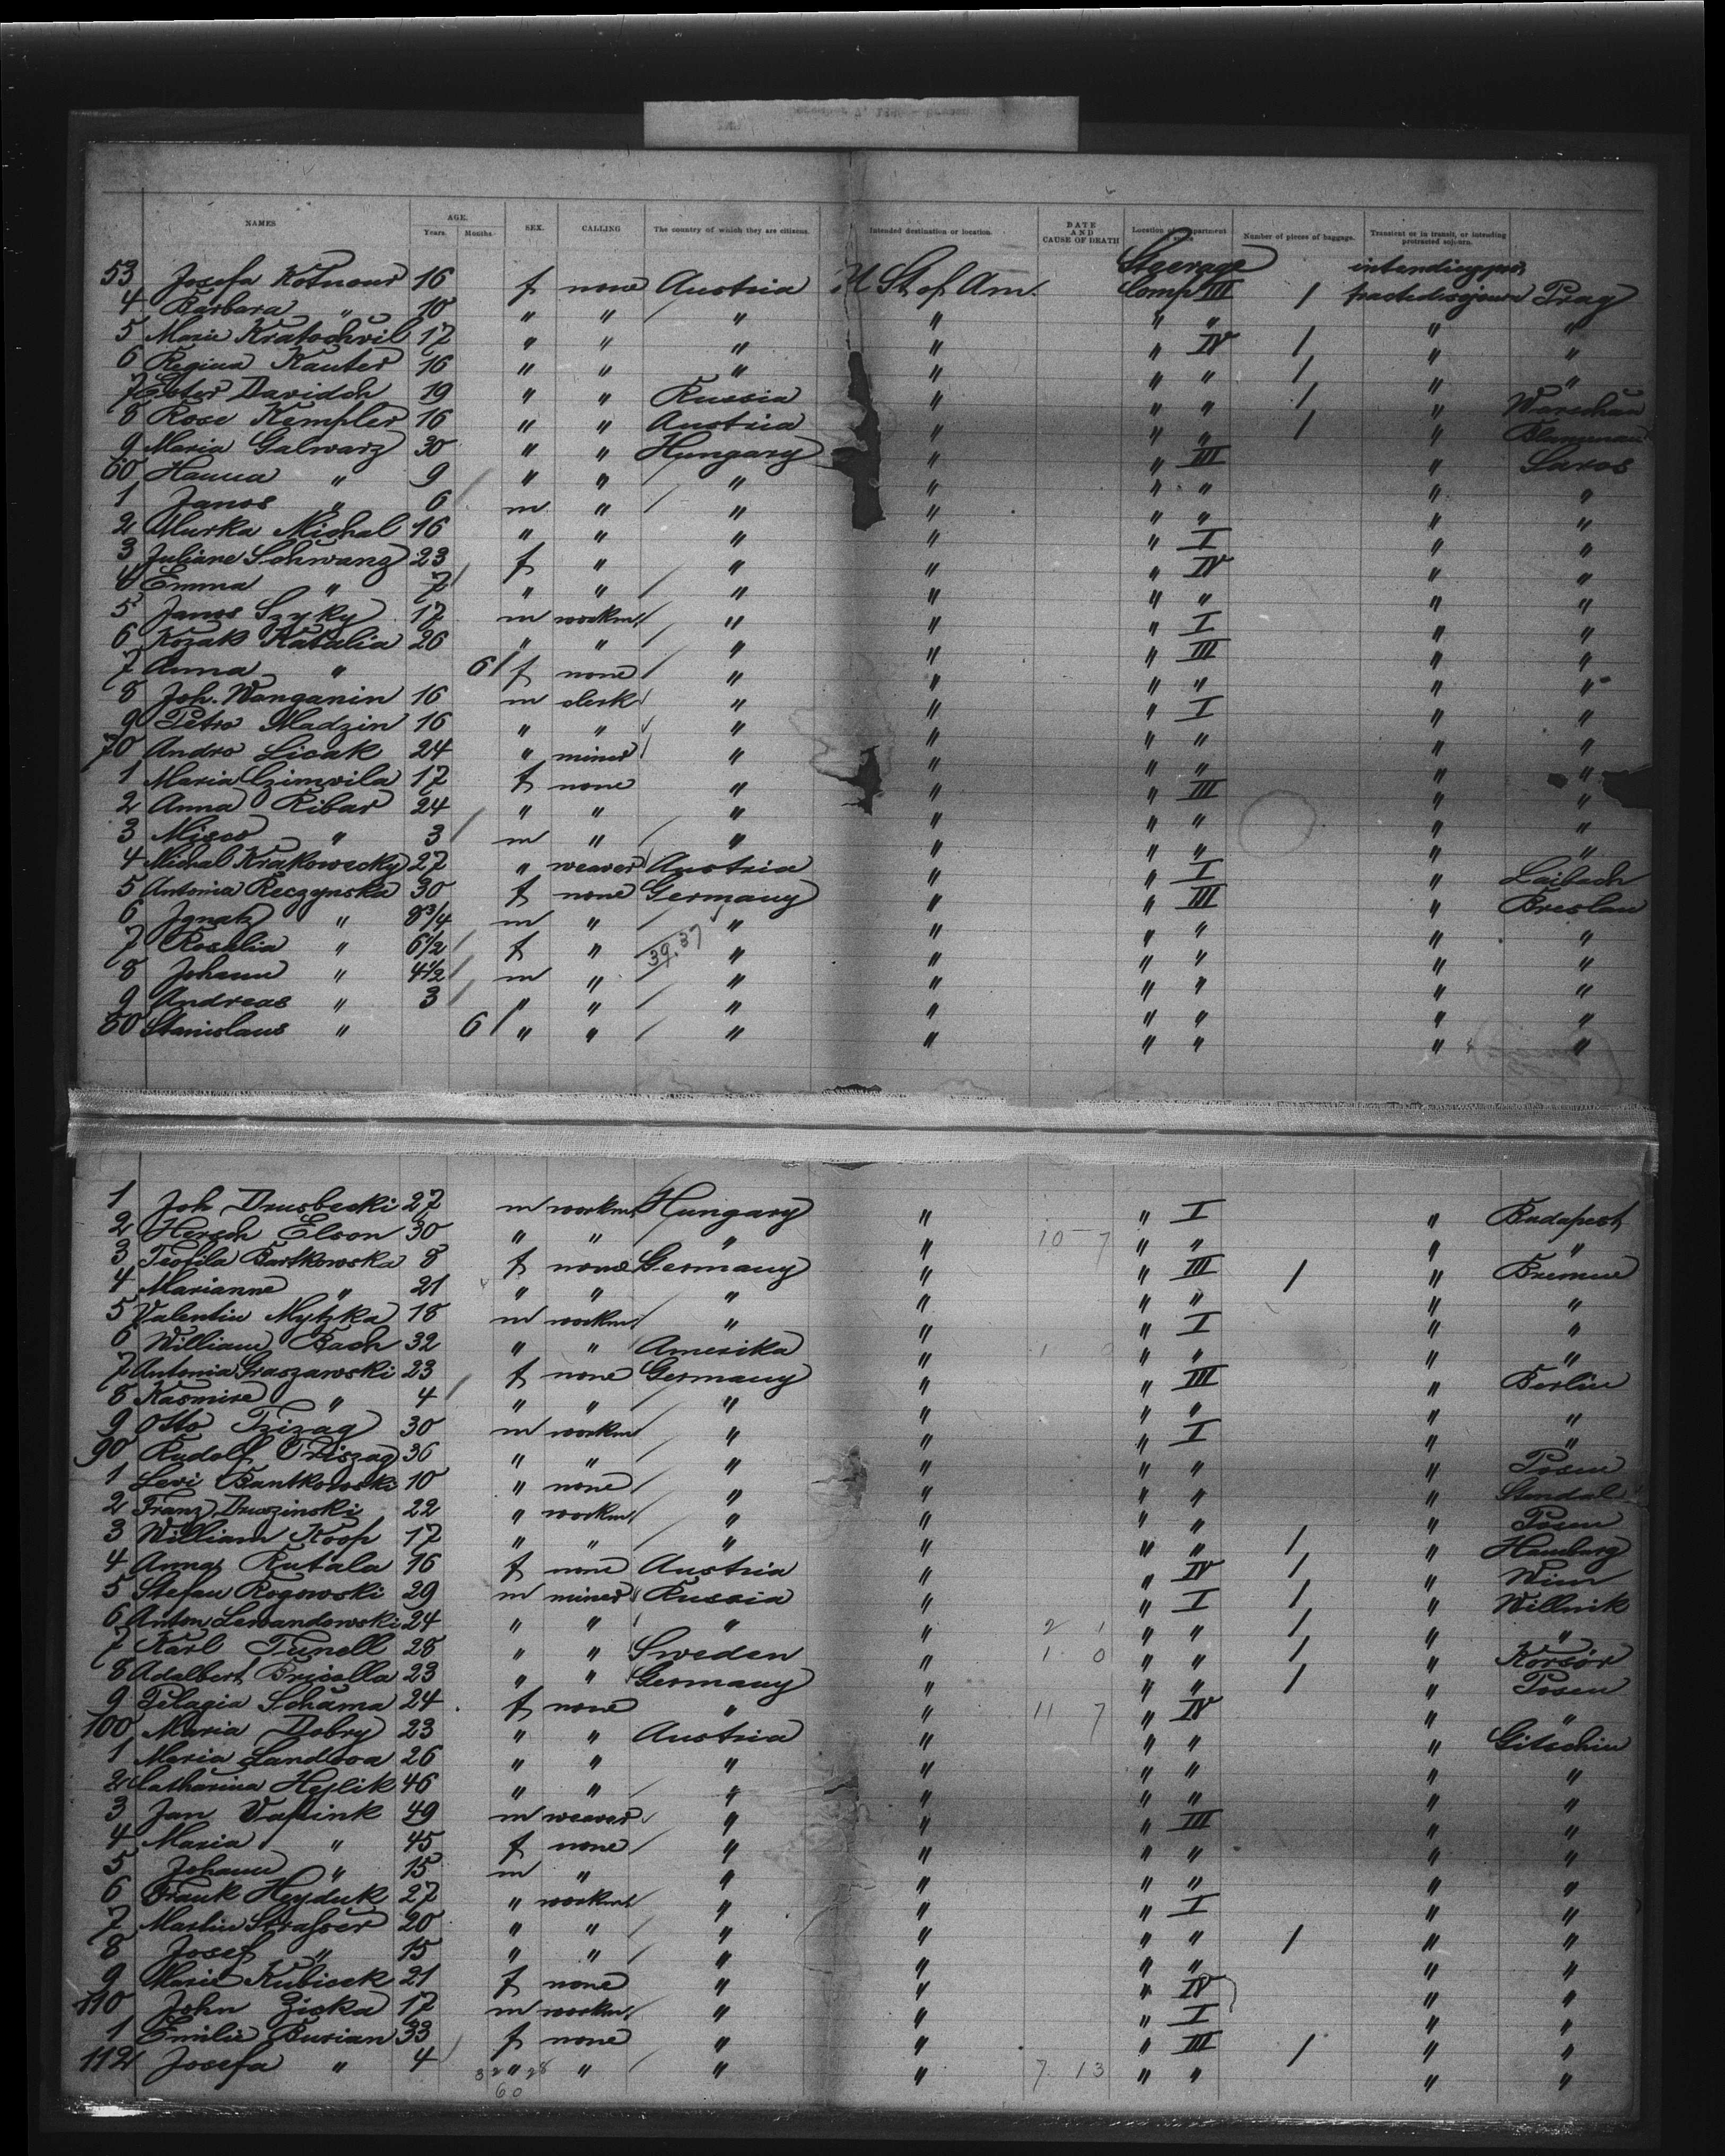 NAMES AGE. Years. Months. SEX. CALLING The country of which they are citizens. Intended destination or location. DATE AND CAUSE OF DEATH Location of compartment or space Number of pieces of baggage. Transient or in transit, or intending protracted sojourn.
53 Josefa Kotnour 16 f none Austria U St of Am. Steerage Comp III 1 intending protractedsojourn Prag
4 Barbara " 10 " " " " " " " "
5 Marie Kratochvil 17 " " " " " IV 1 " "
6 Regina Kauter 16 " " " " " " 1 " "
7 Ester Davidoh 19 " " Russia " " " 1 " Warschau
8 Rose Kempler 16 " " Austria " " " 1 " Blumenau
9 Maria Galwarz 30 " " Hungary " " III " Saros
60 Hanna " 9 " " " " " " " "
1 Janos " 6 m " " " " " " "
2 Murka Michal 16 " " " " " I " "
3 Juliane Schwanz 23 f " " " " IV " "
4 Emma " 7 " " " " " " " "
5 Janos Szyky 17 m workm " " " I " "
6 Kozak Katalia 26 " " " " " III " "
7 Anna " 6 f none " " " " " "
8 Joh. Wanganin 16 m clerk " " " I " "
9 Petro Madzin 16 " " " " " " " "
70 Andro Licak 24 " miner " " " " " "
1 Maria Czimvila 17 f none " " " III " "
2 Anna Ribar 24 " " " " " " " "
3 Misco " 3 m " " " " " " "
4 Michal Krakowecky 27 " weaver Austria " " I " Laibach
5 Antonia Reczynska 30 f none Germany " " III " Breslau
6 Ignatz " 8 3/4 m " " " " " " "
7 Rosalia " 6 1/2 f " 39.37 " " " " " "
8 Johann " 4 1/2 m " " " " " " "
9 Andreas " 3 " " " " " " " "
60 Stanislaus " 6 " " " " " " " "
1 Joh Drusbecki 27 m workm Hungary " " I " Budapest
2 Hersch Elson 30 " " " " 10 7 " " " "
3 Teofila Bartkowska 8 f none Germany " " III 1 " Bremen
4 Marianne " 21 " " " " " " " "
5 Valentin Mytzka 18 m workm " " " I " "
6 William Bach 32 " " Amerika " " " " "
7 Antonia Graszawski 23 f none Germany " " III " Berlin
8 Kasmire " 4 " " " " " " " "
9 Otto Tzizag 30 m workm " " " I " "
90 Rudolf Triszag 36 " " " " " " " Posen
1 Levi Bantkowski 10 " none " " " " " Stendal
2 Franz Druszinski 22 " workm " " " " " Posen
3 William Koop 17 " " " " " " 1 " Hamburg
4 Anna Kutala 16 f none Austria " " IV 1 " Wien
5 Stefan Rogowski 29 m miner Russia " " I 1 " Willnik
6 Anton Lewandowski 24 " " " " 2 1 " " 1 " "
7 Karl Tunell 28 " " Sweden " 1 0 " " 1 " Korsör
8 Adalbert Bricella 23 " " Germany " " " 1 " Posen
9 Pelagia Schama 24 f none " " 11 7 " IV " "
100 Maria Dobry 23 " " Austria " " " " Gitschin
1 Maria Landova 26 " " " " " " " "
2 Catharina Hejlik 46 " " " " " " " "
3 Jan Vapink 49 m weaver " " " III " "
4 Maria " 45 f none " " " " " "
5 Johann " 15 m " " " " " " "
6 Frank Heyduk 27 " workm " " " I " "
7 Martin Strasser 20 " " " " " " 1 " "
8 Josef " 15 " " " " " " " "
9 Marie Kubicek 21 f none " " " IV " "
110 John Ziska 17 m workm " " " I " "
1 Emilie Burian 33 f none " " " III 1 " "
112 Josefa " 4 " " " " 7 13 " " " "
32 28
60